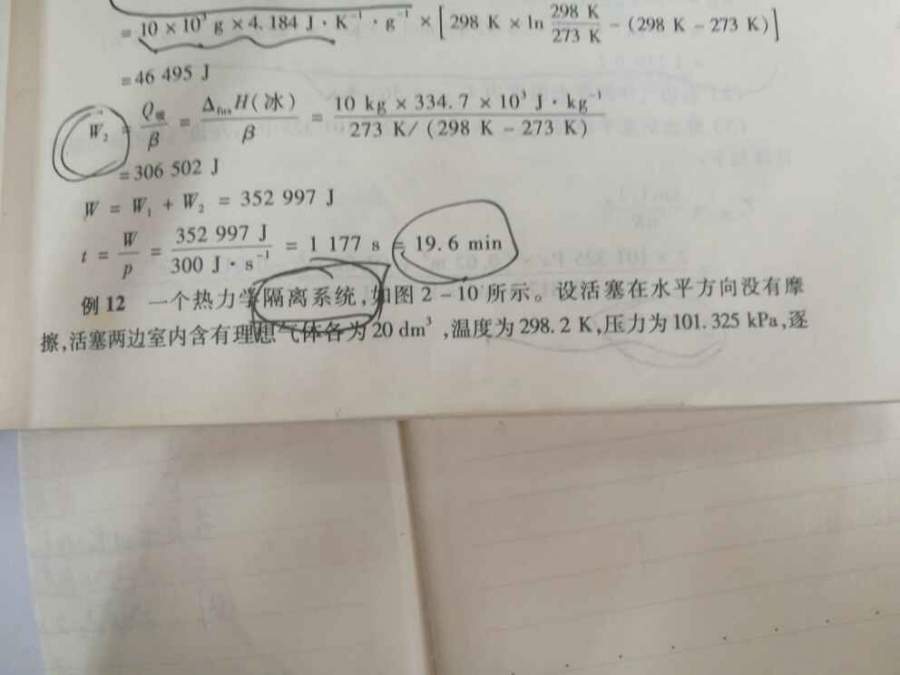 = 10 × 10³ g × 4.184 J · K⁻¹ · g⁻¹ × [298 K × ln 298 K / 273 K − (298 K − 273 K)]
= 46 495 J
W₂ = Q吸 / β = ΔfusH(冰) / β = 10 kg × 334.7 × 10³ J · kg⁻¹ / 273 K/(298 K − 273 K)
= 306 502 J
W = W₁ + W₂ = 352 997 J
t = W / p = 352 997 J / 300 J · s⁻¹ = 1 177 s = 19.6 min
例 12 一个热力学隔离系统,如图 2 − 10 所示。设活塞在水平方向没有摩
擦,活塞两边室内含有理想气体各为 20 dm³,温度为 298.2 K,压力为 101.325 kPa,逐